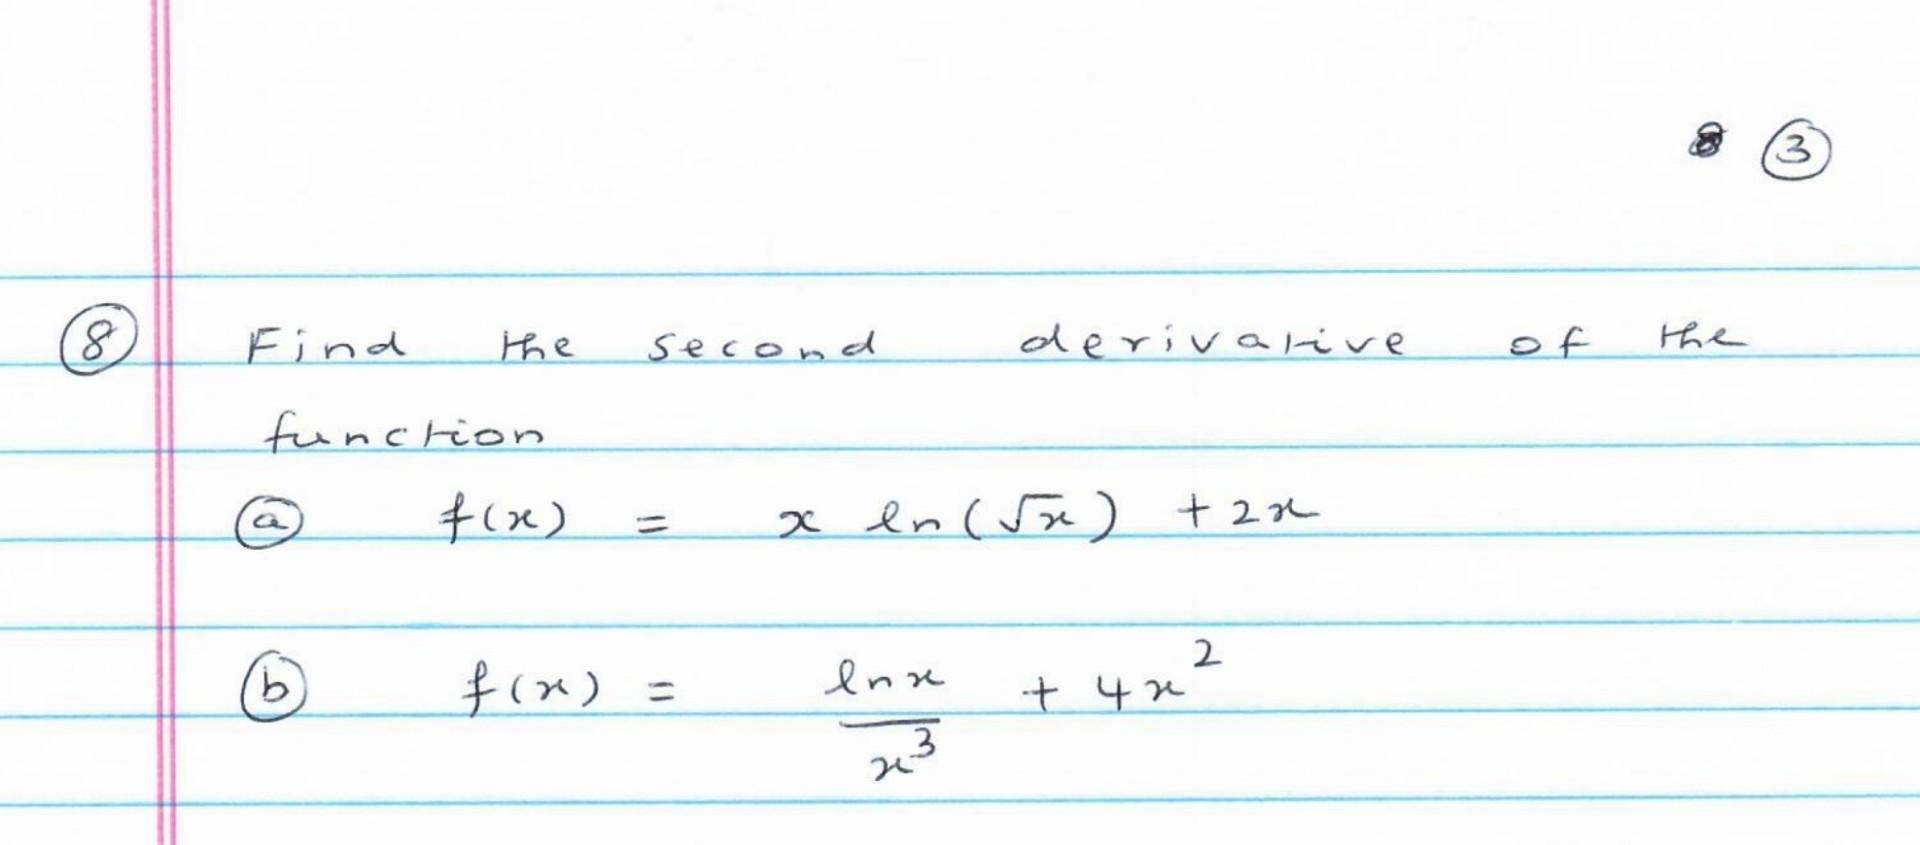 ③
⑧ Find the second derivative of the
function
ⓐ f(x) = x ln(√x) + 2x
ⓑ f(x) = ln x / x³ + 4x²